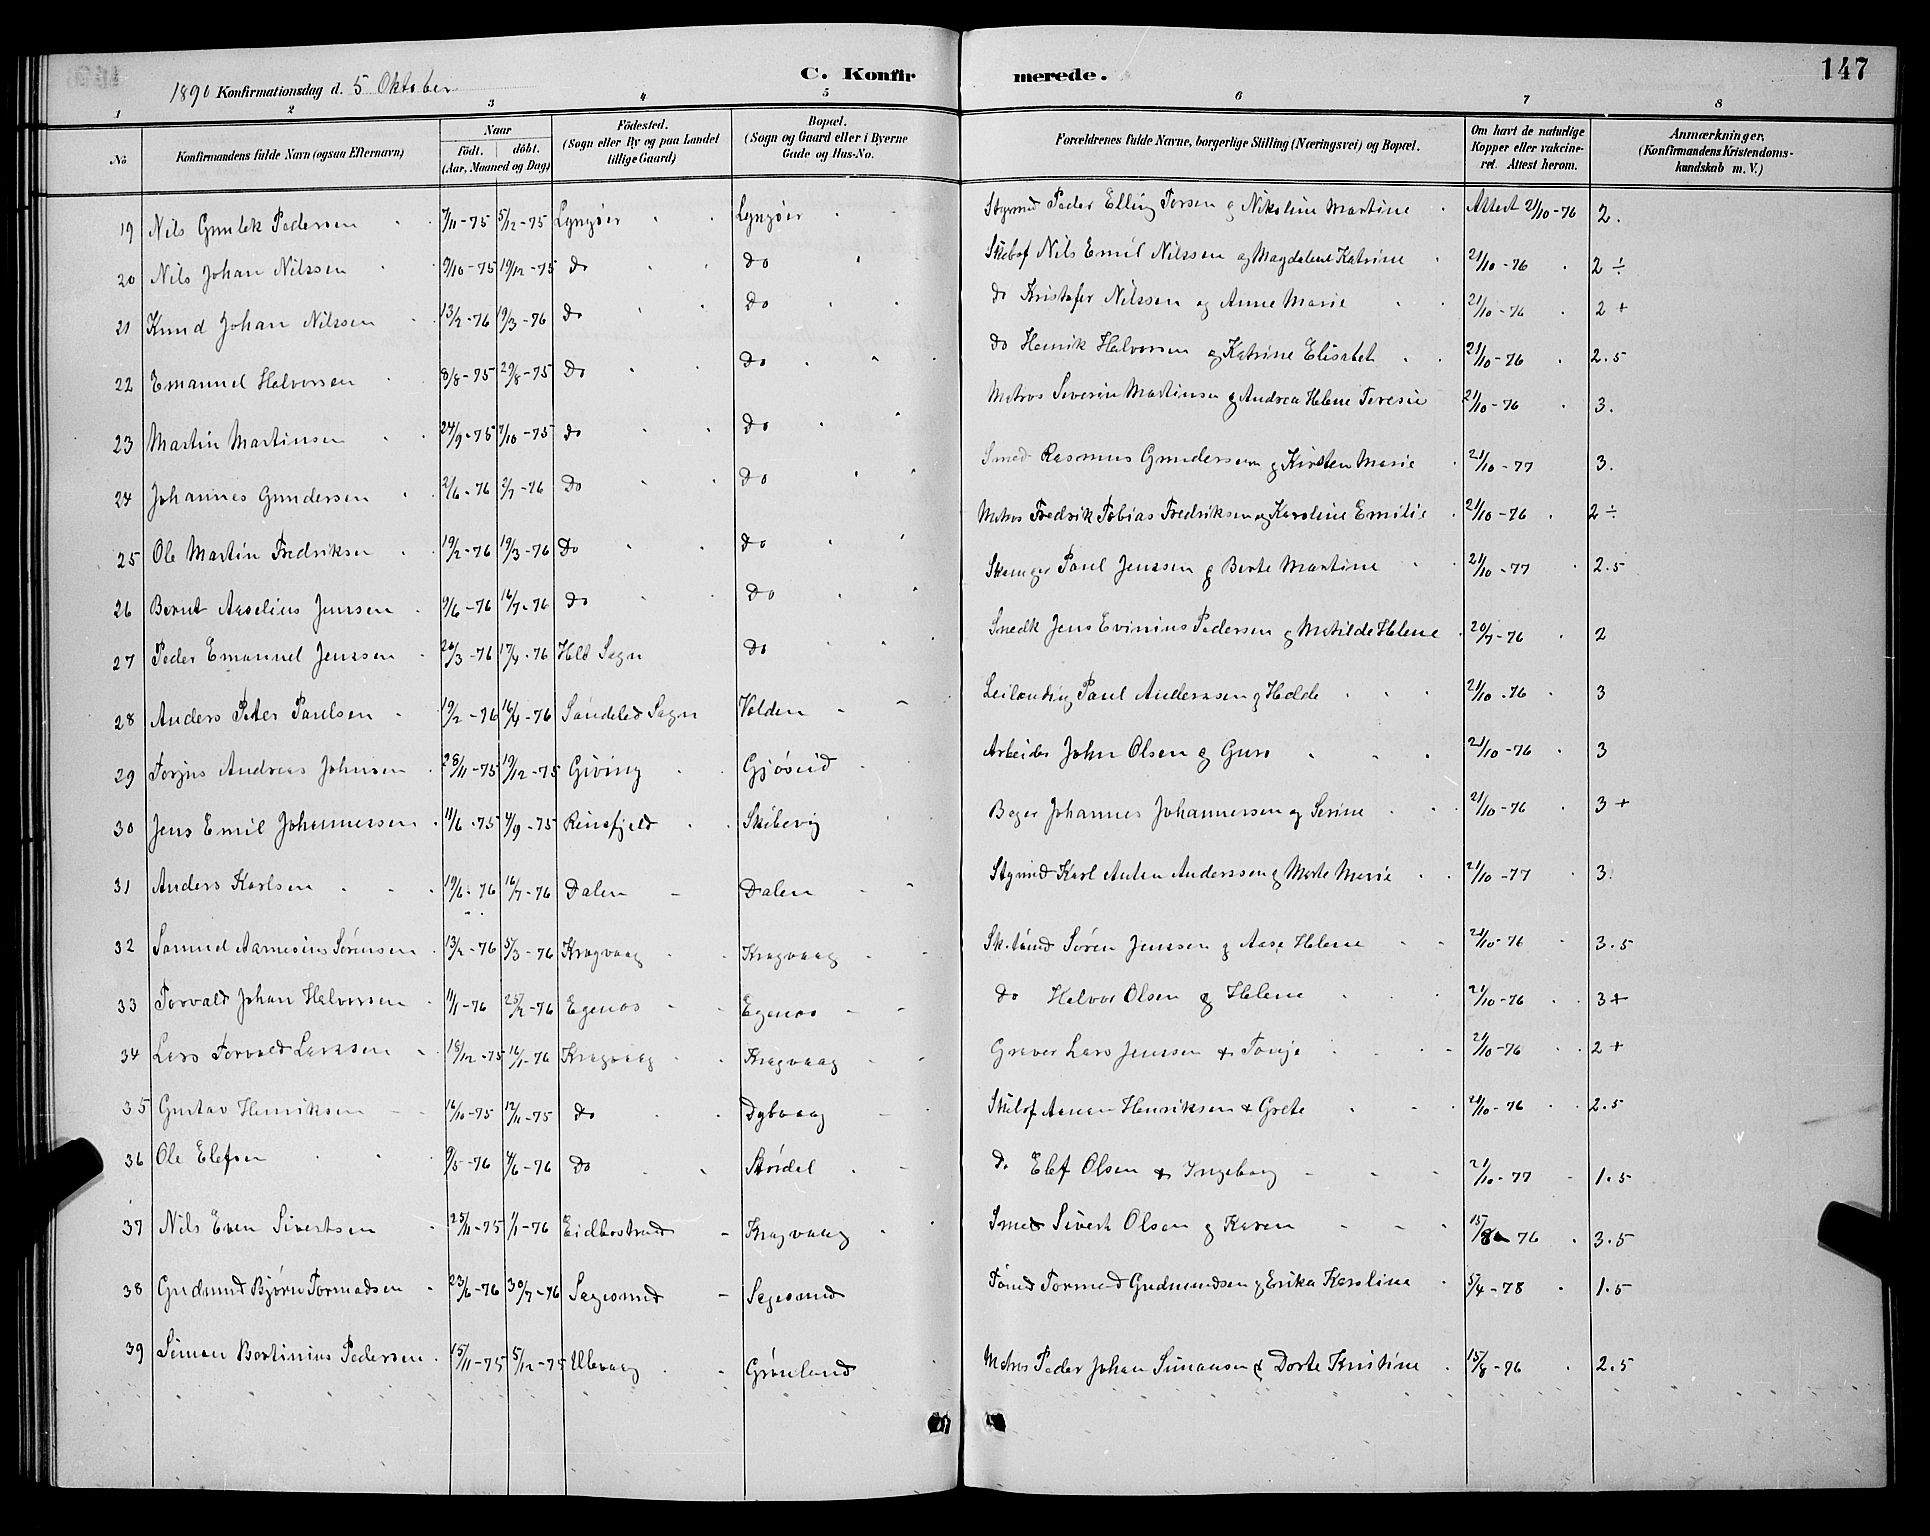 C. Konfirmerede.
147
1890 Konfirmationsdag d. 5 Oktober
1 2 3 4 5 6 7 8
No
Konfirmandens fulde Navn (ogsaa Efternavn)
Naar födt. döbt. (Aar, Maaned og Dag)
Födested. (Sogn eller By og paa Landet tillige Gaard)
Bopæl. (Sogn og Gaard eller i Byerne Gade og Hus-No.
Forældrenes fulde Navne, borgerlige Stilling (Næringsvei) og Bopæl.
Om havt de naturlige Kopper eller vakcineret. Attest herom.
Anmærkninger, (Konfirmandens Kristendomskundskab m. V.)
19 Nils Gunlek Pedersen 7/11-75 5/12-75 Lyngöer Lyngöer Stymd Peder Elling Tersen og Nikoline Martine Attest 21/10-76 2.
20 Nils Johan Nilssen 9/10-75 19/12-75 do do Skibsf Nils Emil Nilssen og Magdelene Katrine 21/10-76 2 ÷
21 Knud Johan Nilssen 13/2-76 19/3-76 do do do Kristofer Nilssen og Anne Marie 21/10-76 2 +
22 Emanuel Halvorsen 8/8-75 29/8-75 do do do Henrik Halvorsen og Katrine Elisabet 21/10-76 2.5
23 Martin Martinsen 24/9-75 7/10-75 do do Matros Severin Martinsen og Andrea Helene Teresie 21/10-76 3.
24 Johannes Gundersen 2/6-76 2/7-76 do do Smed Rasmus Gundersen og Kirsten Marie 21/10-77 3.
25 Ole Martin Fredriksen 19/2-76 19/3-76 do do Matros Fredrik Tobias Fredriksen og Karoline Emilie 21/10-76 2 ÷
26 Bernt Aaselius Jenssen 9/6-76 16/7-76 do do Paul Jenssen og Berte Martine 21/10-77 2.5
27 Peder Emanuel Jenssen 26/3-76 17/4-76 Holt Sogn do Smedk Jens Evinius Pedersen og Matilde Helene 20/7-76 2
28 Anders Peter Paulsen 19/2-76 16/4-76 Söndeled Sogn Volden Leilending Paul Anderssen og Hedde 21/10-76 3
29 Torjus Andreas Johnsen 28/11-75 19/12-75 Giving Gjösvid Arbeider John Olsen og Guro 21/10-76 3
30 Jens Emil Johannessen 11/6-75 4/9-75 Reinsfjeld Skibevig Bøger Johannes Johannessen og Serine 21/10-76 3 +
31 Anders Karlsen 19/6-76 16/7-76 Dalen Dalen Stymd Karl Anton Anderssen og Marte Marie 21/10-77 3.
32 Samuel Aamesius Sörensen 13/2-76 5/3-76 Kragvaag Kragvaag Sk.tömd Sören Jenssen og Aase Helene 21/10-76 3.5
33 Torvald Johan Halvorsen 11/1-76 25/2-76 Egenæs Egenæs do Halvor Olsen og Helene 21/10-76 3+
34 Lars Torvald Larssen 18/12-75 16/1-76 Kragvaag Kragvaag Graver Lars Jenssen & Tonje 21/10-76 2 +
35 Gustav Henriksen 16/10-75 12/11-75 do Dybvaag Skibsf Aanen Henriksen & Grete 21/10-76 2.5
36 Ole Elefsen 9/5-76 4/6-76 do Stördal do Elef Olsen & Ingeborg 21/10-77 1.5
37 Nils Even Sivertsen 25/11-75 1/1-76 Eidbostrand Kragvaag Smed Sivert Olsen og Karen 15/8-76 3.5
38 Gudmund Björn Tormodsen 23/6-76 30/7-76 Sagesund Sagesund Tömd Tormod Gudmundsen og Erika Karoline 5/4-78 1.5
39 Simon Bertinius Pedersen 15/11-75 5/12-75 Ulevaag Grönland Matros Peder Johan Simonsen & Dorte Kristine 15/8-76 2.5